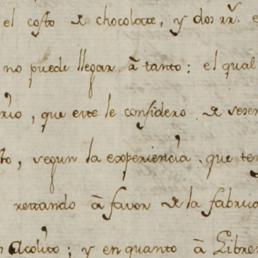 el costo de chocolate, y dos rr.^s e
no puede llegar à tanto: el qual
rio, que este le considero de seten
to, segun la experiencia que ten
restando à favor de la fabrica
Acolito; y en quanto à Libre